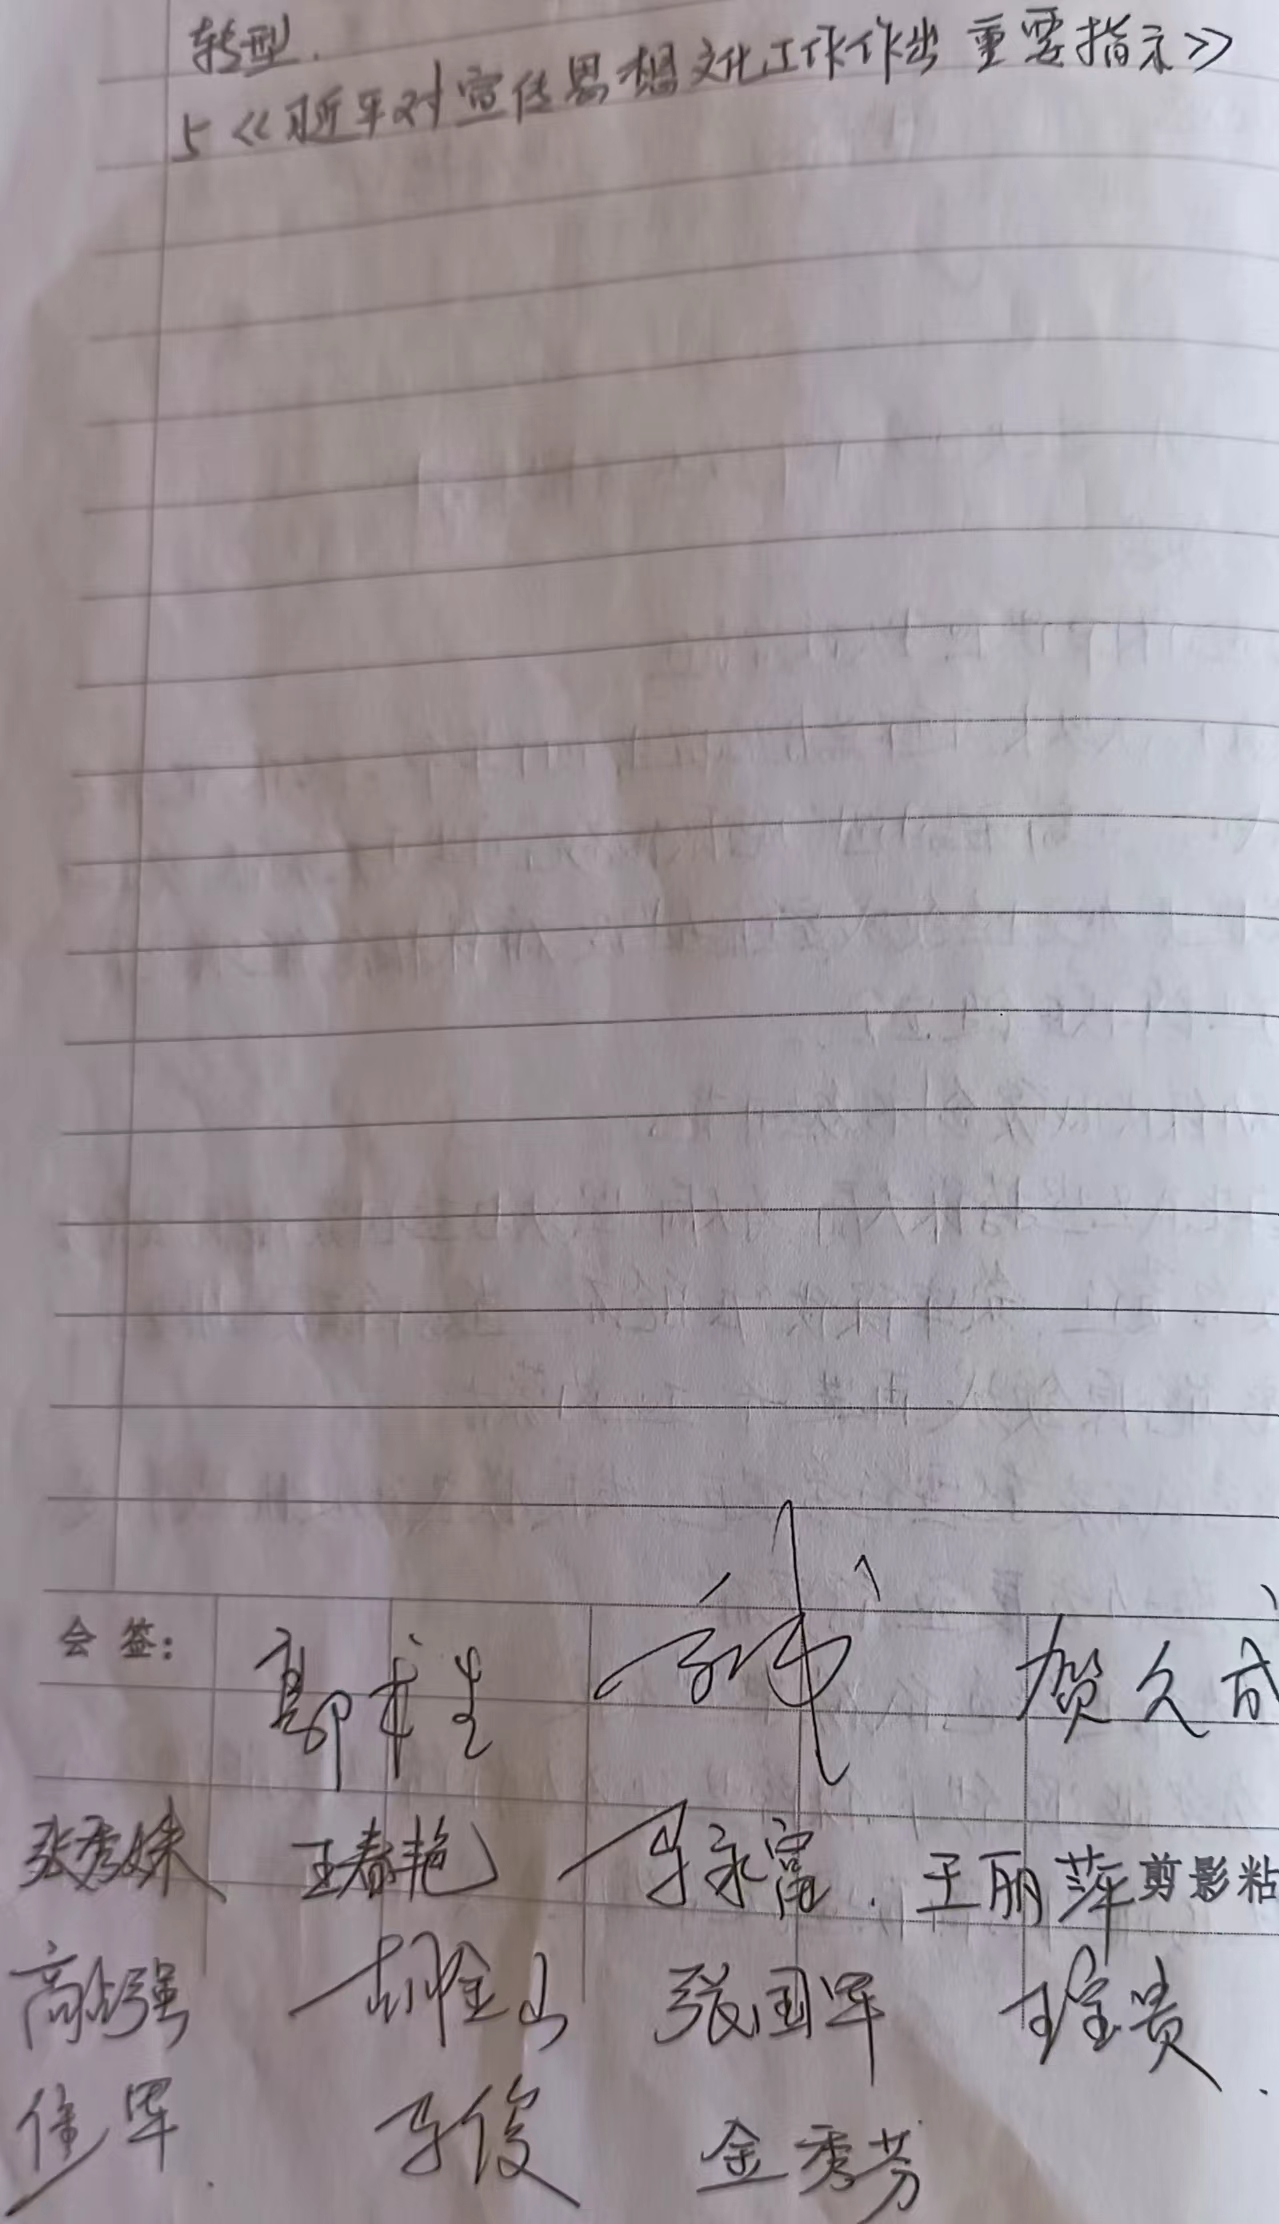 转型.
5《习近平对宣传思想文化工作作出重要指示》
会签:
贺久成
张秀妹 王春艳 马永富. 王丽萍 剪影粘
高占强 胡金山 张国军 王宝贵
军 马俊 金秀芳